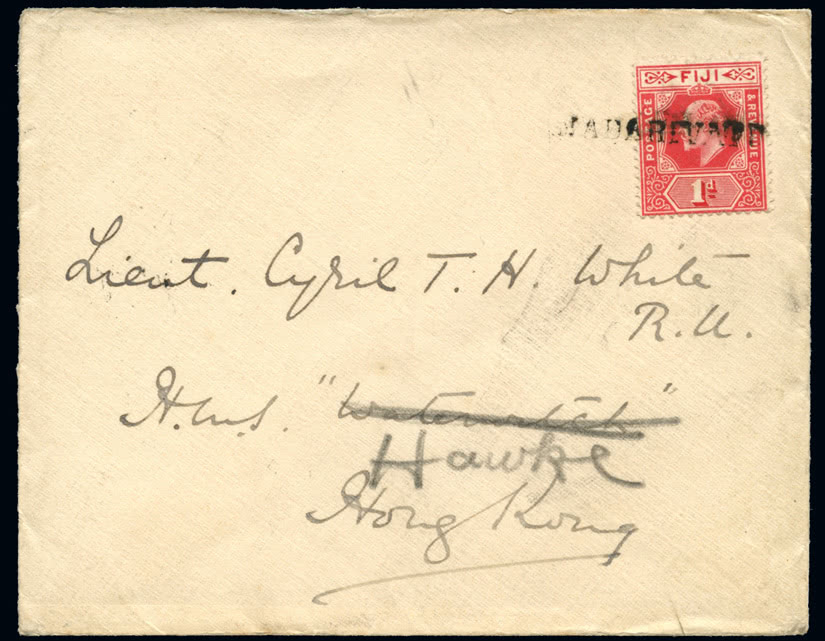 FIJI
POSTAGE & REVENUE
NADARIVATU
1d
Lieut. Cyril T. H. White
R.N.
H.M.S. "Waterwitch"
Hawke
Hong Kong